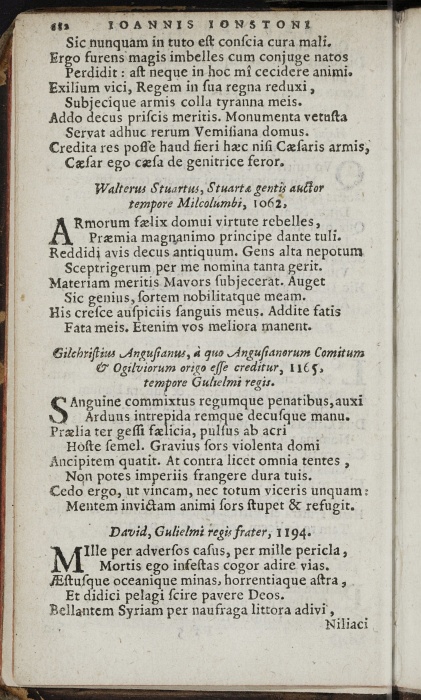 682 IOANNIS IONSTONI
Sic nunquam in tuto eſt conſcia cura mali.
Ergo furens magis imbelles cum conjuge natos
Perdidit : aſt neque in hoc mî cecidere animi.
Exilium vici, Regem in ſua regna reduxi,
Subjecique armis colla tyranna meis.
Addo decus priſcis meritis. Monumenta vetuſta
Servat adhuc rerum Vemiſiana domus.
Credita res poſſe haud fieri hæc niſi Cæſaris armis,
Cæſar ego cæſa de genitrice feror.
Walterus Stuartus, Stuartæ gentis auctor
tempore Milcolumbi, 1062,
ARmorum fælix domui virtute rebelles,
Præmia magnanimo principe dante tuli.
Reddidi avis decus antiquum. Gens alta nepotum
Sceptrigerum per me nomina tanta gerit.
Materiam meritis Mavors ſubjecerat. Auget
Sic genius, ſortem nobilitatque meam.
His creſce auſpiciis ſanguis meus. Addite fatis
Fata meis. Etenim vos meliora manent.
Gilchriſtius Anguſianus, à quo Anguſianorum Comitum
& Ogilviorum origo eſſe creditur, 1165,
tempore Gulielmi regis.
SAnguine commixtus regumque penatibus, auxi
Arduus intrepida remque decuſque manu.
Prælia ter geſſi fælicia, pulſus ab acri
Hoſte ſemel. Gravius ſors violenta domi
Ancipitem quatit. At contra licet omnia tentes,
Non potes imperiis frangere dura tuis.
Cedo ergo, ut vincam, nec totum viceris unquam:
Mentem invictam animi ſors ſtupet & refugit.
David, Gulielmi regis frater, 1194.
MIlle per adverſos caſus, per mille pericla,
Mortis ego infeſtas cogor adire vias.
Æſtuſque oceanique minas, horrentiaque aſtra,
Et didici pelagi ſcire pavere Deos.
Bellantem Syriam per naufraga littora adivi,
Niliaci